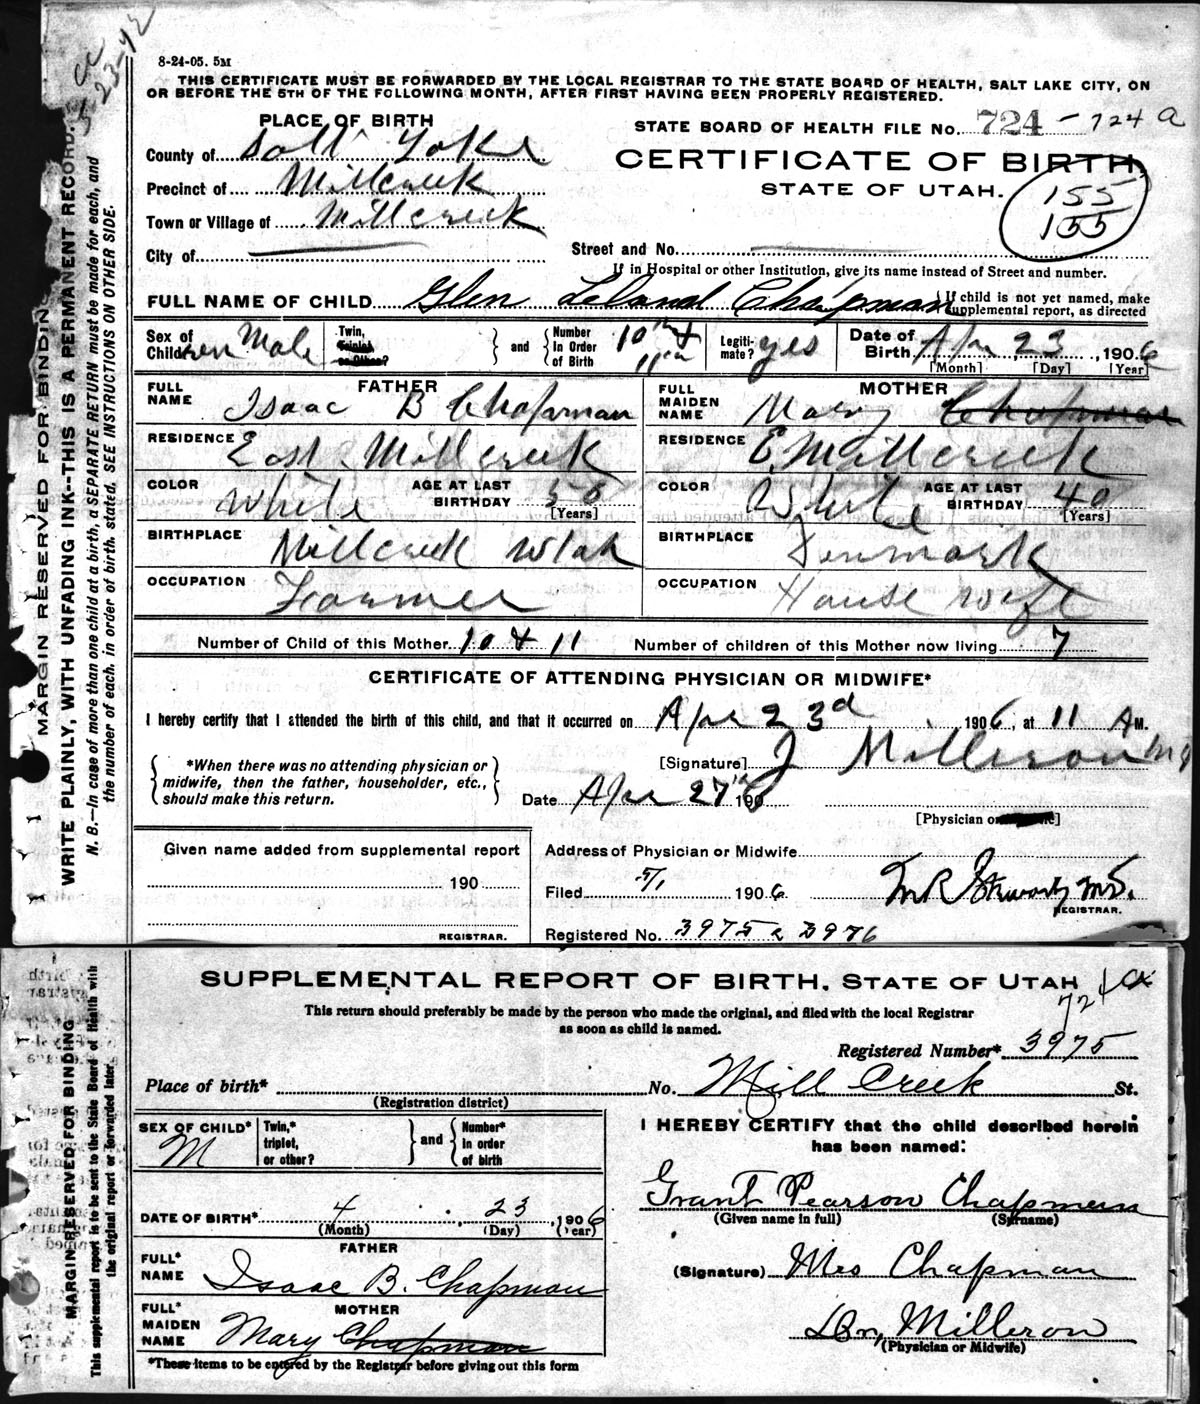 cc
5-23-42
8-24-05. 5M
THIS CERTIFICATE MUST BE FORWARDED BY THE LOCAL REGISTRAR TO THE STATE BOARD OF HEALTH, SALT LAKE CITY, ON
OR BEFORE THE 5TH OF THE FOLLOWING MONTH, AFTER FIRST HAVING BEEN PROPERLY REGISTERED.
PLACE OF BIRTH
STATE BOARD OF HEALTH FILE No. 724 - 724 a
County of Salt Lake
CERTIFICATE OF BIRTH
Precinct of Millcreek
STATE OF UTAH.
155
155
Town or Village of Millcreek
City of
Street and No.
If in Hospital or other Institution, give its name instead of Street and number.
FULL NAME OF CHILD Glen Leland Chapman { If child is not yet named, make supplemental report, as directed
Sex of Children Male
Twin, Triplet or Other? } and { Number In Order of Birth 10th & 11th
Legitimate? yes
Date of Birth Apr 23, 1906
[Month] [Day] [Year]
FATHER
FULL NAME Isaac B Chapman
RESIDENCE East Millcreek
COLOR White AGE AT LAST BIRTHDAY 56 [Years]
BIRTHPLACE Millcreek Utah
OCCUPATION Farmer
MOTHER
FULL MAIDEN NAME Mary Chapman
RESIDENCE E. Millcreek
COLOR White AGE AT LAST BIRTHDAY 40 [Years]
BIRTHPLACE Denmark
OCCUPATION House wife
Number of Child of this Mother 10 & 11 Number of children of this Mother now living 7
CERTIFICATE OF ATTENDING PHYSICIAN OR MIDWIFE*
I hereby certify that I attended the birth of this child, and that it occurred on Apr 23d, 1906, at 11 A M.
*When there was no attending physician or
midwife, then the father, householder, etc.,
should make this return.
[Signature] J Milleron MD
Date Apr 27th 1906
[Physician or
Given name added from supplemental report
190
REGISTRAR.
Address of Physician or Midwife
Filed 5/1 1906
M.D.
REGISTRAR.
Registered No. 3975 & 3976
MARGIN RESERVED FOR BINDIN
WRITE PLAINLY, WITH UNFADING INK--THIS IS A PERMANENT RECORD.
N. B.—In case of more than one child at a birth, a SEPARATE RETURN must be made for each, and
the number of each, in order of birth, stated. SEE INSTRUCTIONS ON OTHER SIDE.
SUPPLEMENTAL REPORT OF BIRTH. STATE OF UTAH
724 a
This return should preferably be made by the person who made the original, and filed with the local Registrar
as soon as child is named.
Registered Number* 3975
Place of birth* No. Mill Creek St.
(Registration district)
SEX OF CHILD* M
Twin,* triplet, or other? } and { Number* in order of birth
DATE OF BIRTH* 4 23, 1906
(Month) (Day) (Year)
FATHER
FULL* NAME Isaac B. Chapman
MOTHER
FULL* MAIDEN NAME Mary Chapman
*These items to be entered by the Registrar before giving out this form
I HEREBY CERTIFY that the child described herein
has been named:
Grant Pearson Chapman
(Given name in full) (Surname)
(Signature) Mrs Chapman
Dr, Milleron
(Physician or Midwife)
MARGIN RESERVED FOR BINDING
This supplemental report is to be sent to the State Board of Health with
the original report or forwarded later.